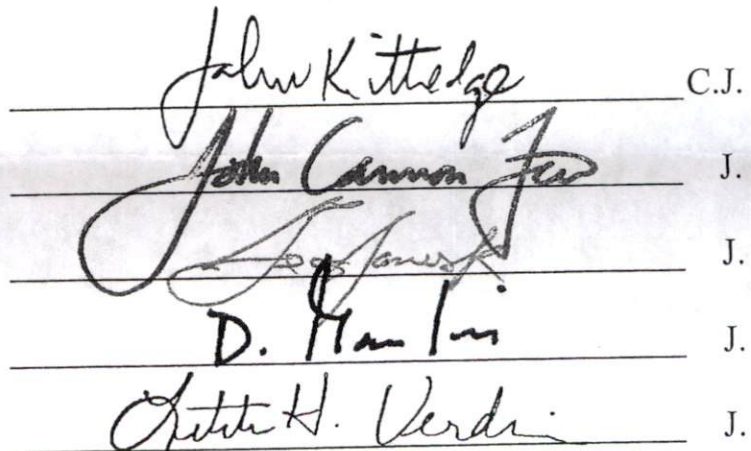 John Kittredge C.J.
John Cannon Few J.
J.
D. J.
Letitia H. Verdin J.